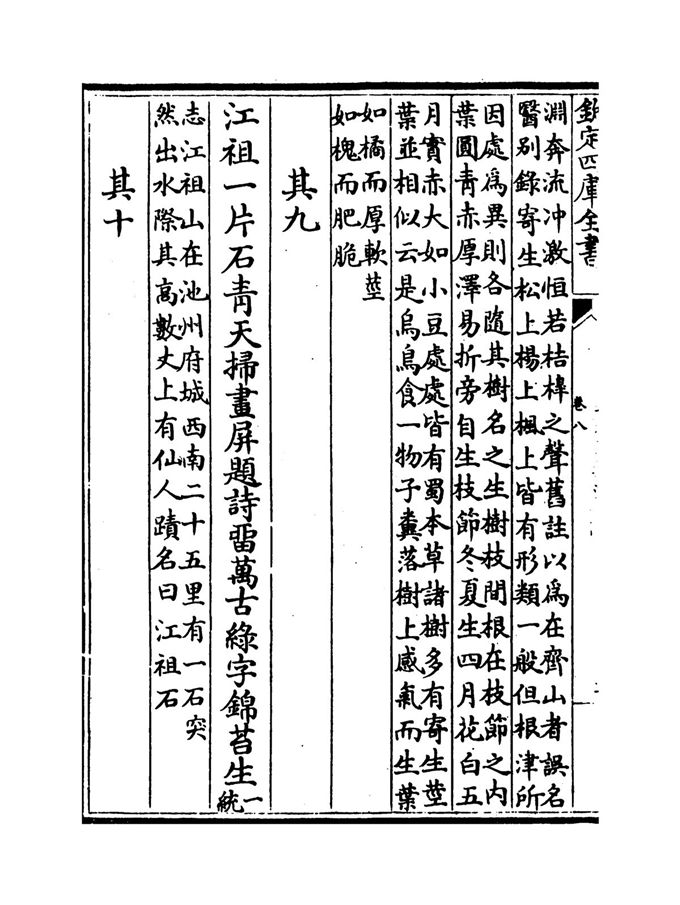 欽定四庫全書
卷八
淵奔流沖激恒若桔槔之聲舊註以爲在齊山者誤名
醫别錄寄生松上楊上楓上皆有形類一般但根津所
因處爲異則各隨其樹名之生樹枝間根在枝節之内
葉圓青赤厚澤易折旁自生枝節冬夏生四月花白五
月實赤大如小豆處處皆有蜀本草諸樹多有寄生莖
葉並相似云是烏鳥食一物子糞落樹上感氣而生葉
如橘而厚軟莖
如槐而肥脆
其九
江祖一片石青天掃畫屏題詩畱萬古綠字錦苔生一
統
志江祖山在池州府城西南二十五里有一石突
然出水際其高數丈上有仙人蹟名曰江祖石
其十